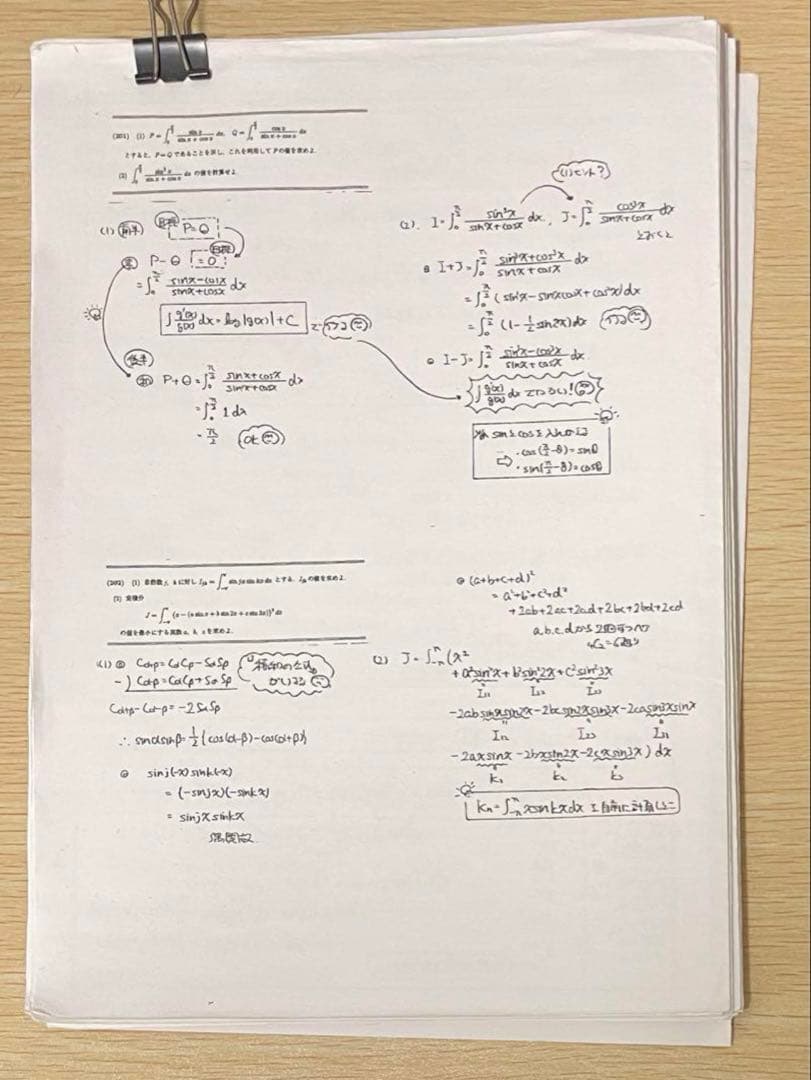 (201) (1) P=∫₀^{π/2} sin x/(sin x+cos x) dx, Q=∫₀^{π/2} cos x/(sin x+cos x) dx
とすると, P=Q であることを示し, これを利用して P の値を求めよ.
(2) ∫₀^{π/2} sin³x/(sin x+cos x) dx の値を計算せよ.
(1) 前半 目標 P=Q
P-Q =0
=∫₀^{π/2} (sinx-cosx)/(sinx+cosx) dx
∫ g'(x)/g(x) dx = log|g(x)|+C
後半
P+Q=∫₀^{π/2} (sinx+cosx)/(sinx+cosx) dx
=∫₀^{π/2} 1dx
=π/2 OK
(1)ヒント?
(2). I=∫₀^{π/2} sin³x/(sinx+cosx) dx, J=∫₀^{π/2} cos³x/(sinx+cosx) dx
とおくと
I+J=∫₀^{π/2} (sin³x+cos³x)/(sinx+cosx) dx
=∫₀^{π/2} (sin²x-sinxcosx+cos²x)dx
=∫₀^{π/2} (1-½sin2x)dx
I-J=∫₀^{π/2} (sin³x-cos³x)/(sinx+cosx) dx
∫ g'(x)/g(x) dx
・cos(π/2-θ)=sinθ
・sin(π/2-θ)=cosθ
(202) (1) 自然数 j, k に対し I_{jk}=∫_{-π}^{π} sin jx sin kx dx とする. I_{jk} の値を求めよ.
(2) 定積分
J=∫_{-π}^{π} {x-(a sin x+b sin 2x+c sin 3x)}² dx
の値を最小にする実数 a, b, c を求めよ.
(1) Cα+β=CαCβ-SαSβ
-) Cα-β=CαCβ+SαSβ
Cα+β-Cα-β=-2SαSβ
∴ sinαsinβ=½{cos(α-β)-cos(α+β)}
sinj(-x)sink(-x)
=(-sinjx)(-sinkx)
=sinjxsinkx
偶関数
(a+b+c+d)²
=a²+b²+c²+d²
+2ab+2ac+2ad+2bc+2bd+2cd
a,b,c,dから2個
₄C₂=6通り
(2) J=∫_{-π}^{π}(x²
+a²sin²x+b²sin²2x+c²sin²3x
I₁₁ I₂₂ I₃₃
-2absinxsin2x-2bcsin2xsin3x-2casin3xsinx
I₁₂ I₂₃ I₃₁
-2axsinx-2bxsin2x-2cxsin3x)dx
K₁ K₂ K₃
Kn=∫_{-π}^{π} xsinkxdx を